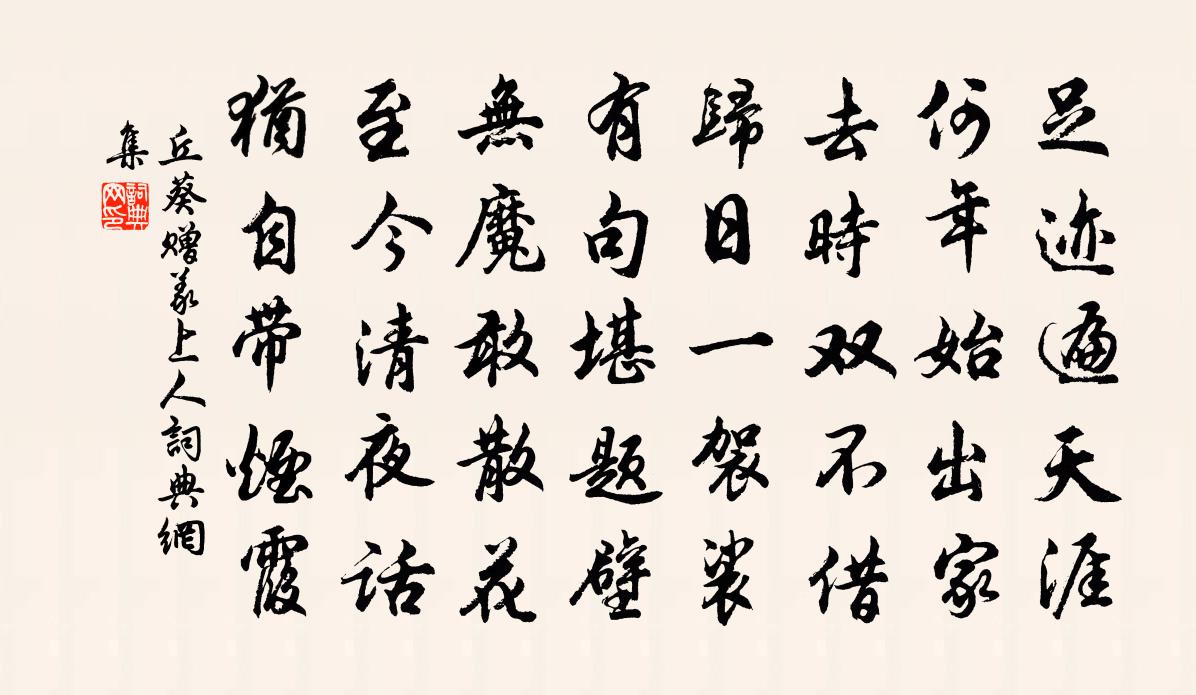 足迹遍天涯
何年始出家
去時双不借
歸日一袈裟
有句堪題壁
無魔敢散花
至今清夜話
猶自帶煙霞
丘葵贈義上人詞典網
集
詞典
网印